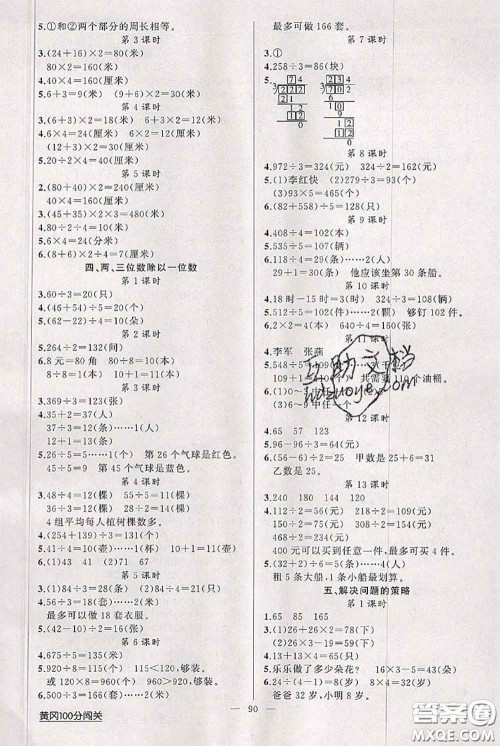 5.①和②两个部分的周长相等。
第3课时
3.(24+16)×2=80(厘米)
80×2=160(厘米)
4.40×4=160(厘米)
5.6+3=9(厘米) 9×4=36(厘米)
第4课时
3.(6+9)×2=30(厘米)
4.6×4=24(厘米)
(12+3)×2=30(厘米)
5.20÷2=10(厘米)
第5课时
2.(80+40)×2=240(厘米)
40×4=160(厘米)
3.(45+35)×2×2=320(米)
4.80×2=160(厘米)
5.6×4=24(厘米)
6.(4+3)×2=14(厘米)
四、两、三位数除以一位数
第1课时
3.60÷3=20(只)
4.(36-6)÷3=10(张)
5.(62-22)÷4=10(张)
第2课时
5.264÷2=132(间)
6.8元=80角 80÷8=10(本)
8÷8=1(本) 10+1=11(本)
第3课时
3.369÷3=123(张)
4.35÷2=17(条)……1(条)
37÷2=18(条)……1(条)
5.(1)35 17 (2)第26个气球是红色。
第55个气球是黄色。 第45个气球是蓝色。
第4课时
3.48÷4=12(棵) 55÷5=11(棵)
36÷3=12(棵) 50÷5=10(棵)
4组平均每人植树棵数多。
4.(254+139)÷3=131(个)
5.41÷4=10(杯)……1(杯) 10+1=11(杯)
6.(1)43 41 (2)67 71
第5课时
3.(1)84÷3=28(条) (2)84÷2=42(条)
4.56÷3=18(套)……2(米)
最多可以做18套衣服。
5.(42-10)÷2=16(只)
第6课时
4.675÷5=135(米)
5.920÷8=115(个) 460÷4=115(个)
或920÷8=115(个) 460×2=920(个)
6.500÷3=166(套)……2(米)
最多可做166套。
第7课时
3.①
4.258÷3=86(块)
第8课时
4.972÷3=324(元) 324÷2=162(元)
5.(1)李红快 (2)279÷3=93(个)
(3)93×5=465(个)
6.(82+558)÷5=128(只)
第9课时
4.408÷4=102(本)
5.535÷5=107(辆)
6.89÷3=29(条)……2(人)
29+1=30(条) 他应该坐第30条船。
第10课时
4.18时-15时=3时 324÷3=108(个)
5.512÷5=102(件)……2(颗) 够钉102件。
6.2×2=4(本) 640÷4=160(本)
第11课时
4.李军 张燕
第12课时
3.96÷6=16(元)
4.96-96÷3=64(只)
5.56-6=50 50÷2=25 甲数是25+6=31
乙数是25。
第13课时
3.240 180 144 120
4.288÷2=144(元) 658÷7=94(元)
872÷4=218(元) 144+94+218=456(元)
400元可以买到任意一件,最多可买到两件。
5.租5条大船、1条小船最划算。
五、解决问题的策略
第1课时
1.65 85 165
2.34+32=66(元)
3.(1)26+26×2=78(下)
(2)26+(26+30)=82(下)
4.24×2+24=72(只)
第2课时
2.乐乐做了多少朵花? 24×3=72(朵)
3.(1)9×4=36(个) (2)9×5=45(个)
4.(32-8)÷(4-1)=8(岁) 8×4=32(岁)
爸爸32岁,小明8岁。
黄冈100分闯关
— 90 —
答案圈
MXQE.COM